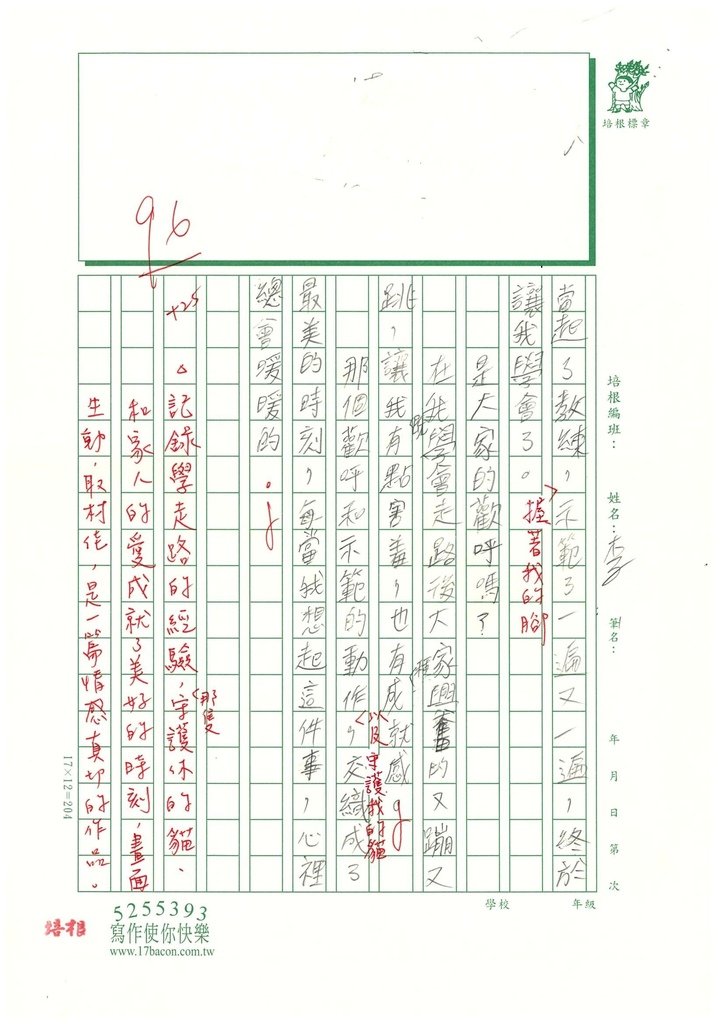 培根標章
培根編班：
姓名：李
筆名：
年 月 日 第 次
當起了教練，示範了一遍又一遍，終於
讓我學會了。
握著我的腳
是大家的歡呼嗎？
在我學會走路後大家興奮的又蹦又
跳，讓我有點害羞，也有成就感
以及守護我的貓
那個歡呼和示範的動作，交織成了
最美的時刻，每當我想起這件事，心裡
總會暖暖的。
96
+25
記錄學走路的經驗，守護你的貓、
那隻
和家人的愛成就了美好的時刻，畫面
生動，取材佳，是一篇情感真切的作品。
17×12=204
學校
年級
培根
5255393
寫作使你快樂
www.17bacon.com.tw